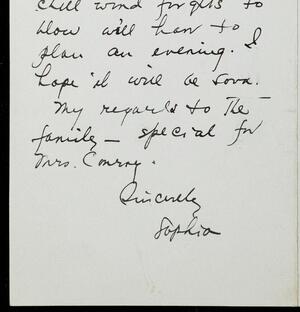 chill wind forgets to
blow will have to
plan an evening. I
hope it will be soon.
My regards to The
family — special for
Mrs. Conroy.
Sincerely
Sophia